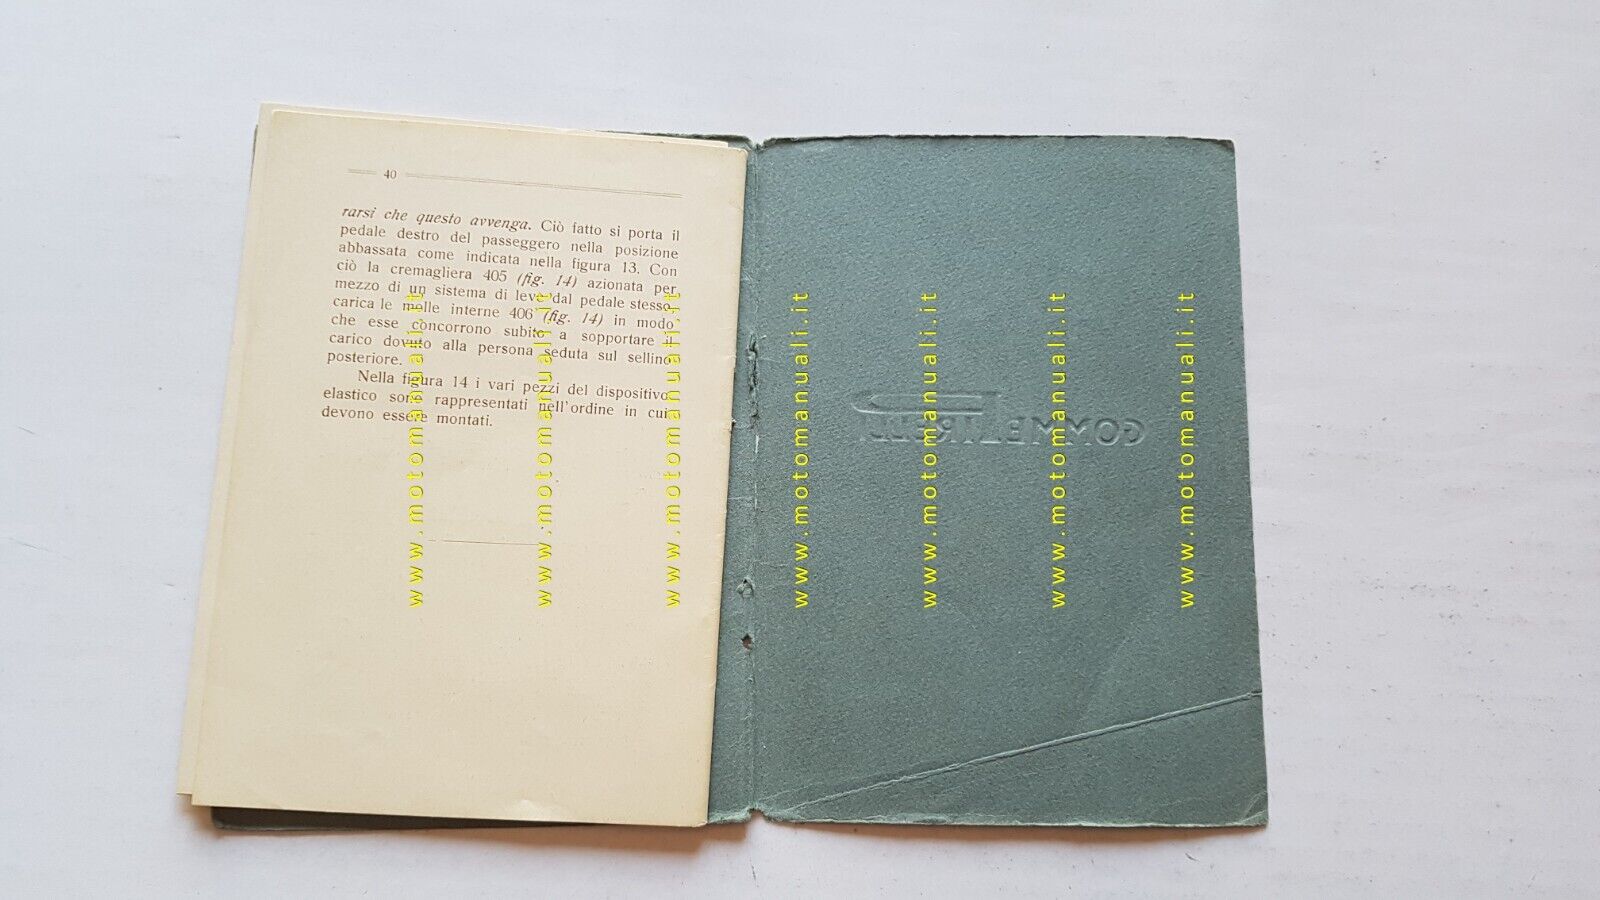 40
rarsi che questo avvenga. Ciò fatto si porta il
pedale destro del passeggero nella posizione
abbassata come indicata nella figura 13. Con
ciò la cremagliera 405 (fig. 14) azionata per
mezzo di un sistema di leve dal pedale stesso,
carica le molle interne 406 (fig. 14) in modo
che esse concorrono subito a sopportare il
carico dovuto alla persona seduta sul sellino
posteriore.
Nella figura 14 i vari pezzi del dispositivo
elastico sono rappresentati nell'ordine in cui
devono essere montati.
GOMME PIRELLI
www.motomanuali.it
www.motomanuali.it
www.motomanuali.it
www.motomanuali.it
www.motomanuali.it
www.motomanuali.it
www.motomanuali.it